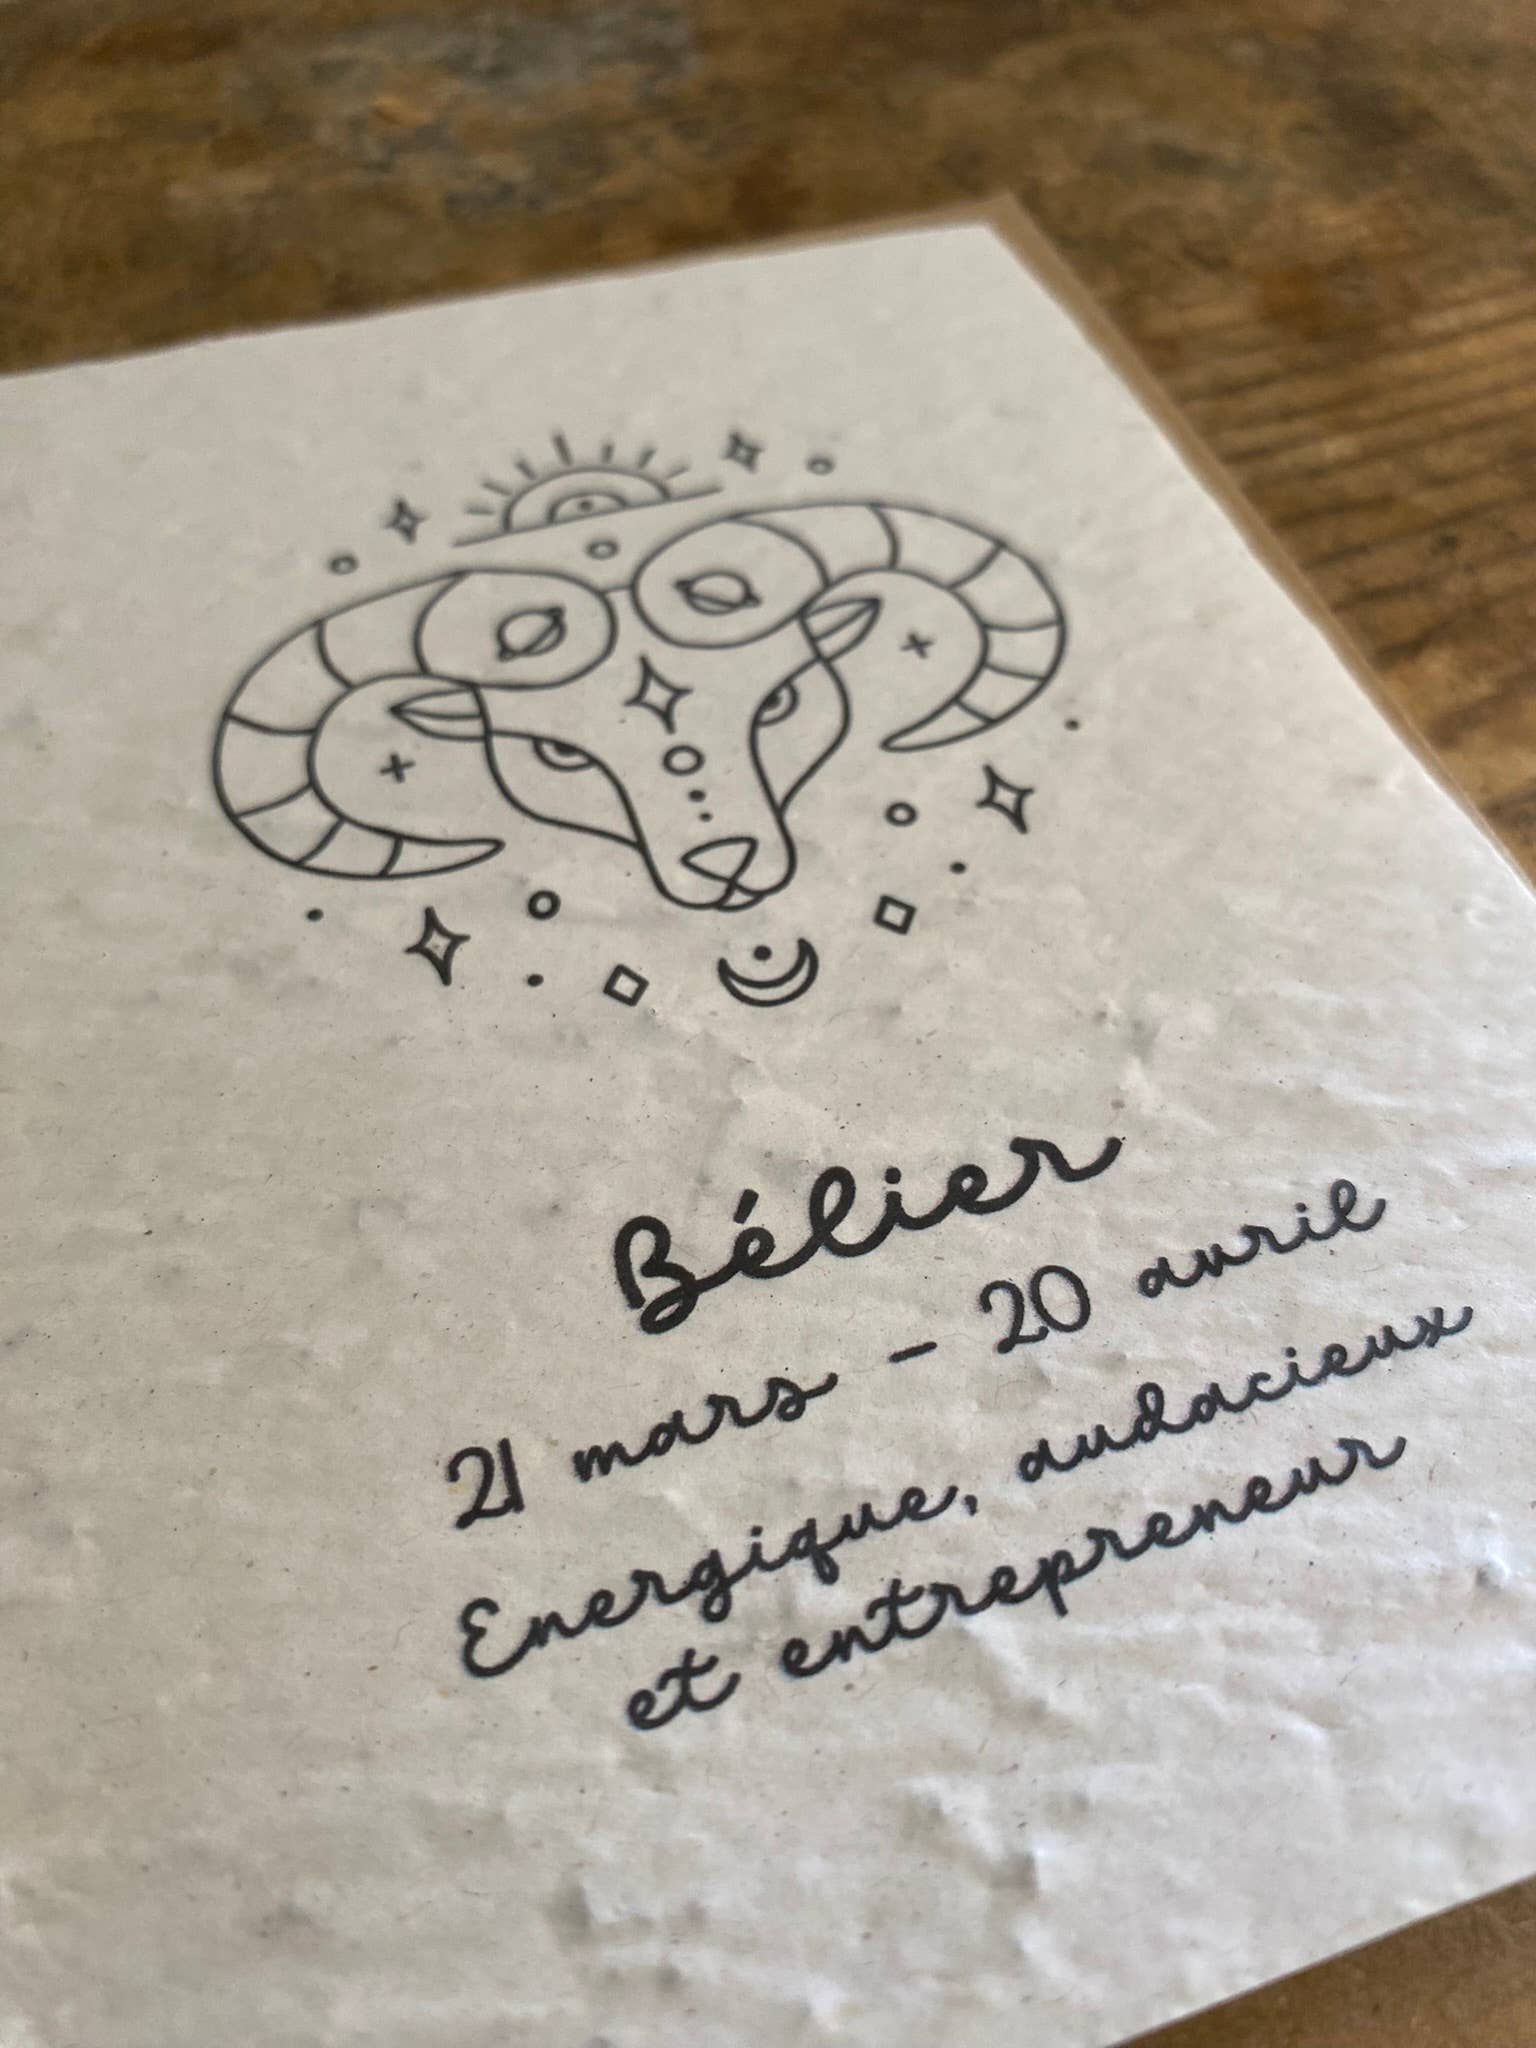 Bélier
21 mars - 20 avril
Energique, audacieux
et entrepreneur